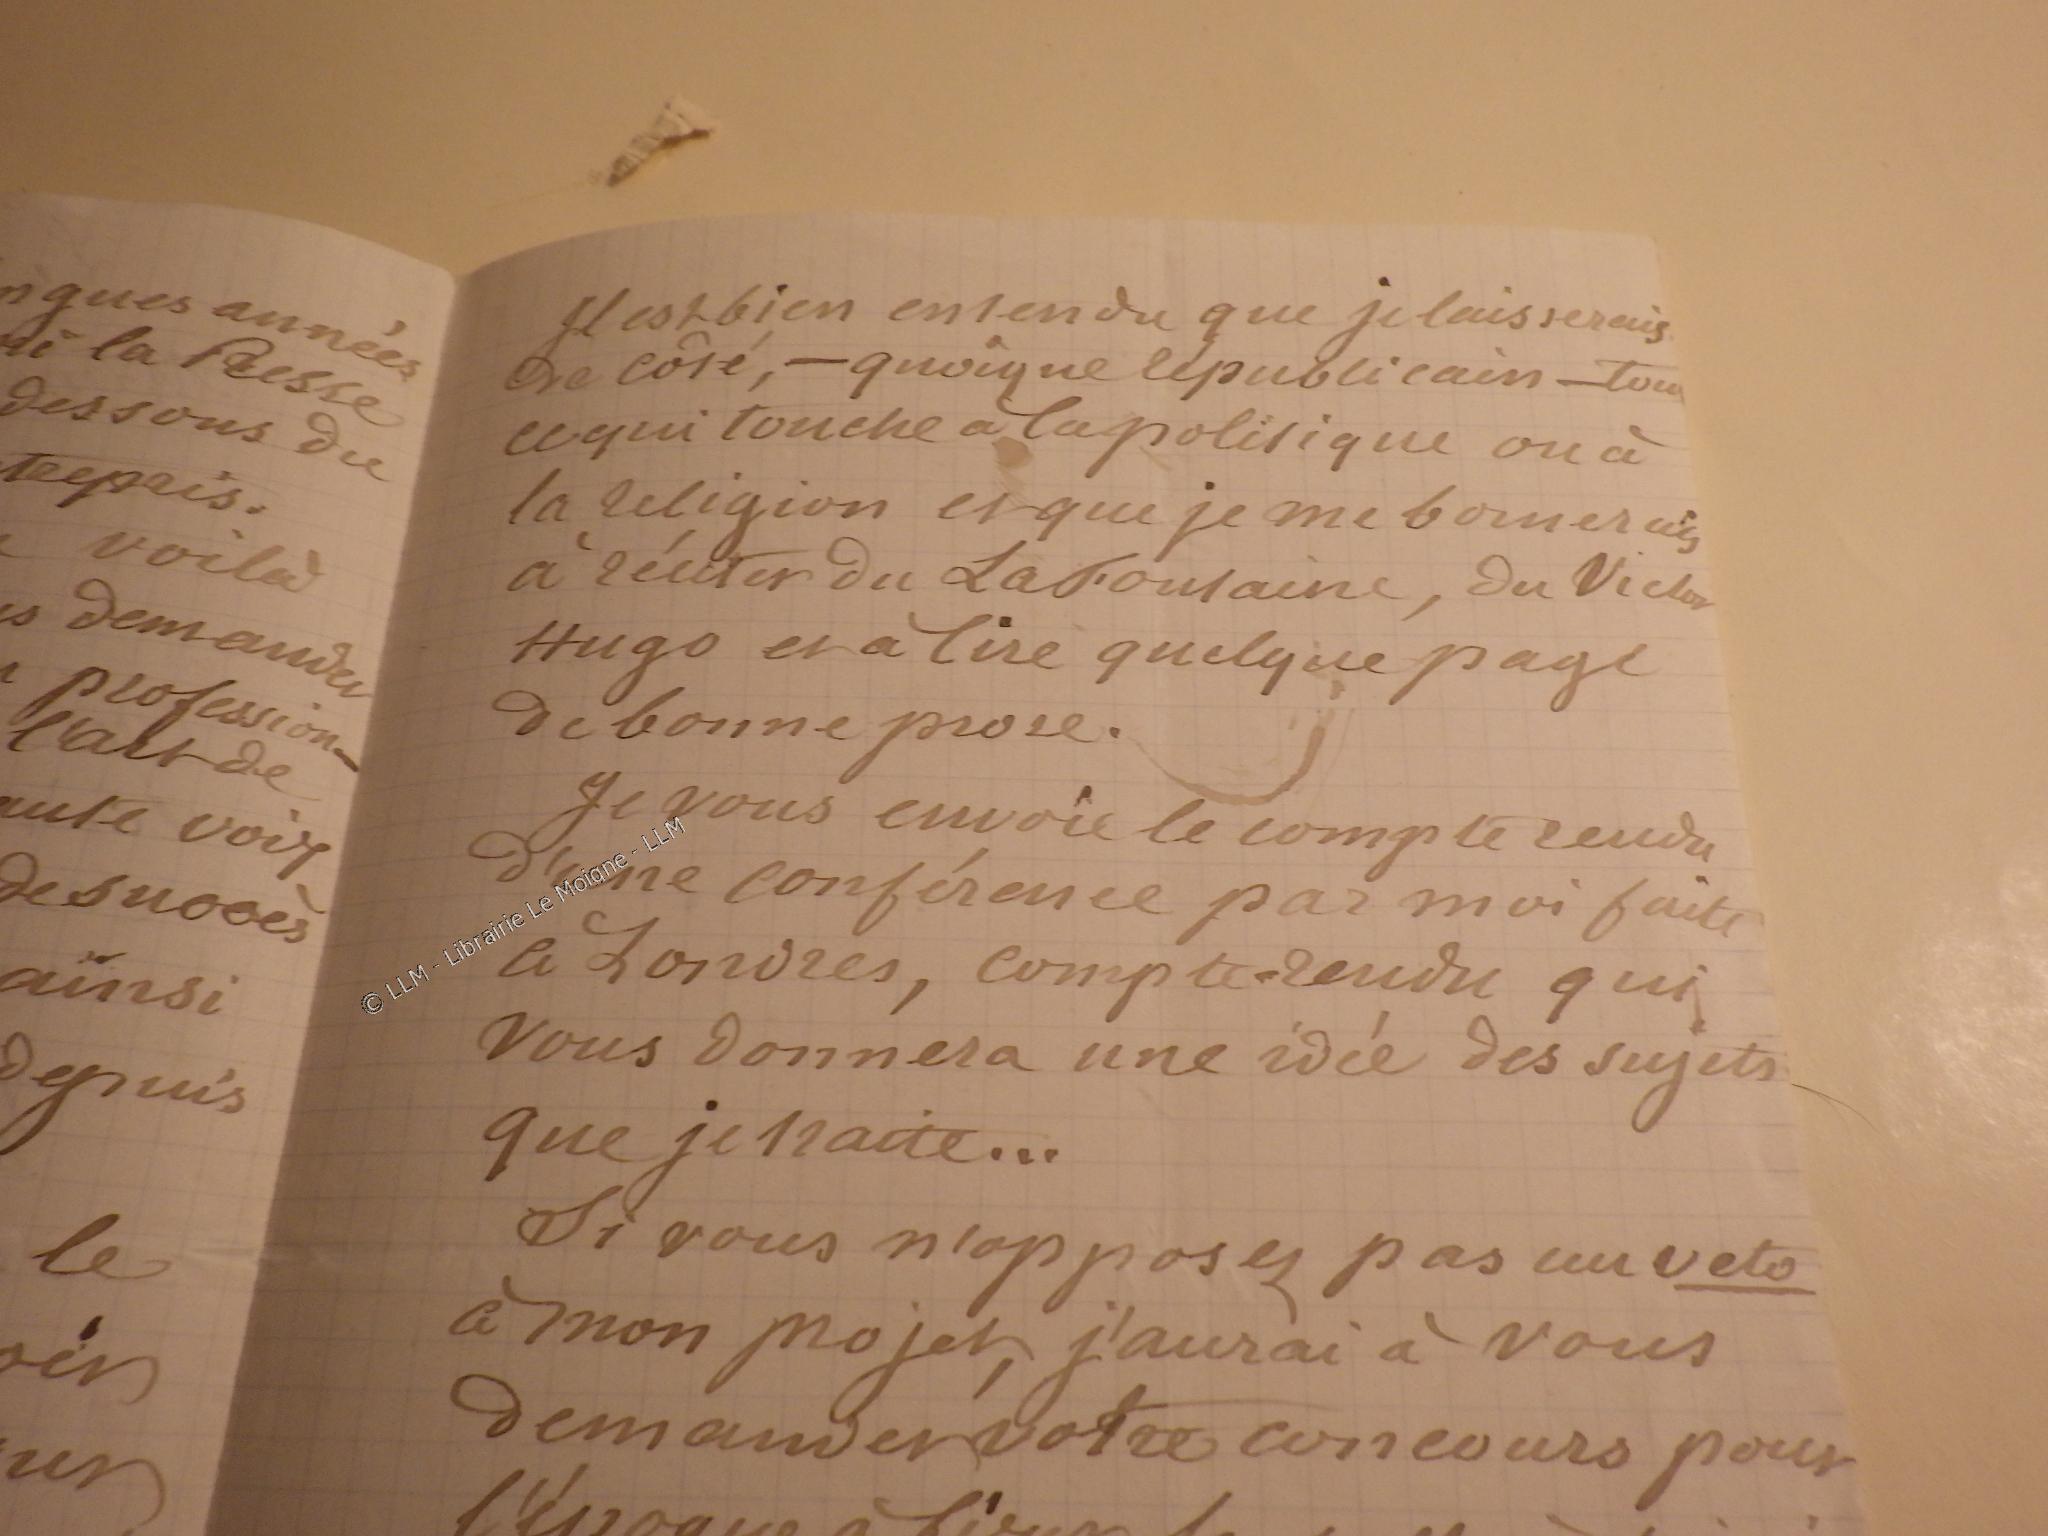 années
la Presse
dessous du
voilà
demander
profession-
l'art de
voix
de succès
ainsi
depuis
le
Il est bien entendu que je laisserais
de côté, — quoique républicain — tout
ce qui touche à la politique ou à
la religion et que je me bornerais
à réciter du La Fontaine, du Victor
Hugo et à lire quelque page
de bonne prose.
Je vous envoie le compte rendu
d'une conférence par moi faite
à Londres, compte-rendu qui
vous donnera une idée des sujets
que je traite...
Si vous n'opposez pas un veto
à mon projet, j'aurai à vous
demander votre concours pour
l'époque à
© LLM - Librairie Le Moigne - LLM